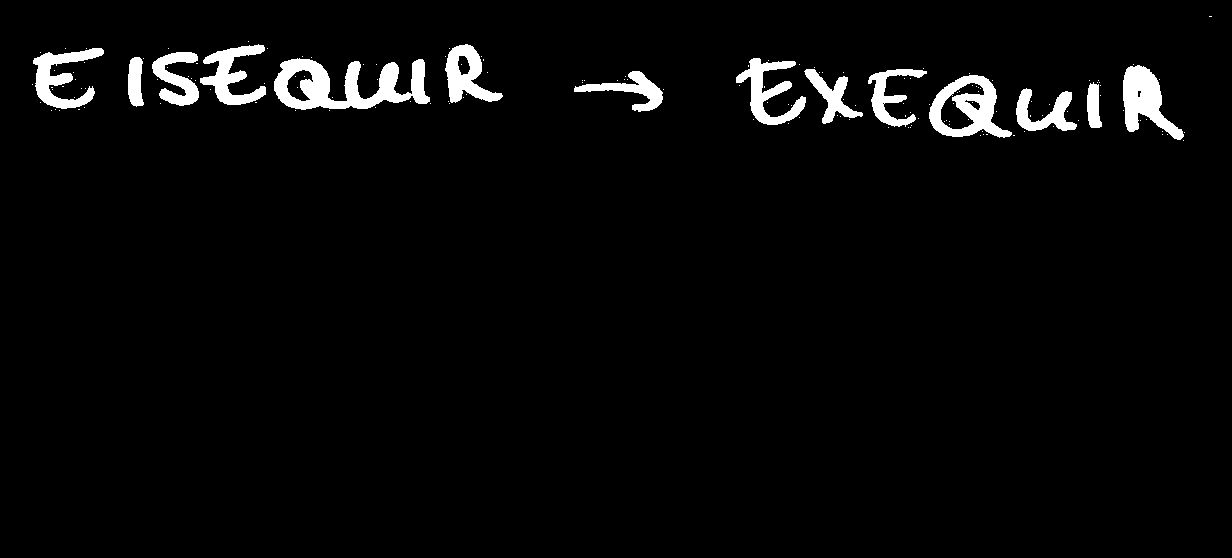 EISEQUIR → EXEQUIR